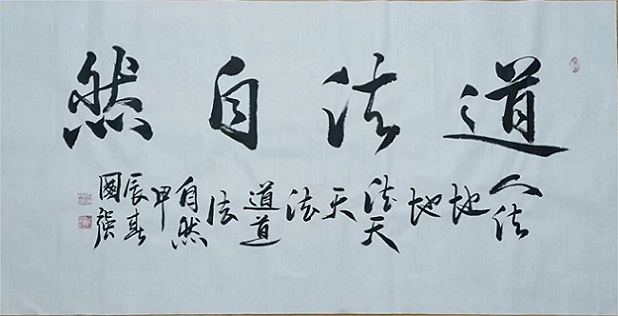 道法自然
人法
地
地
法天
天
法
道道
法
自然
甲
辰春
國